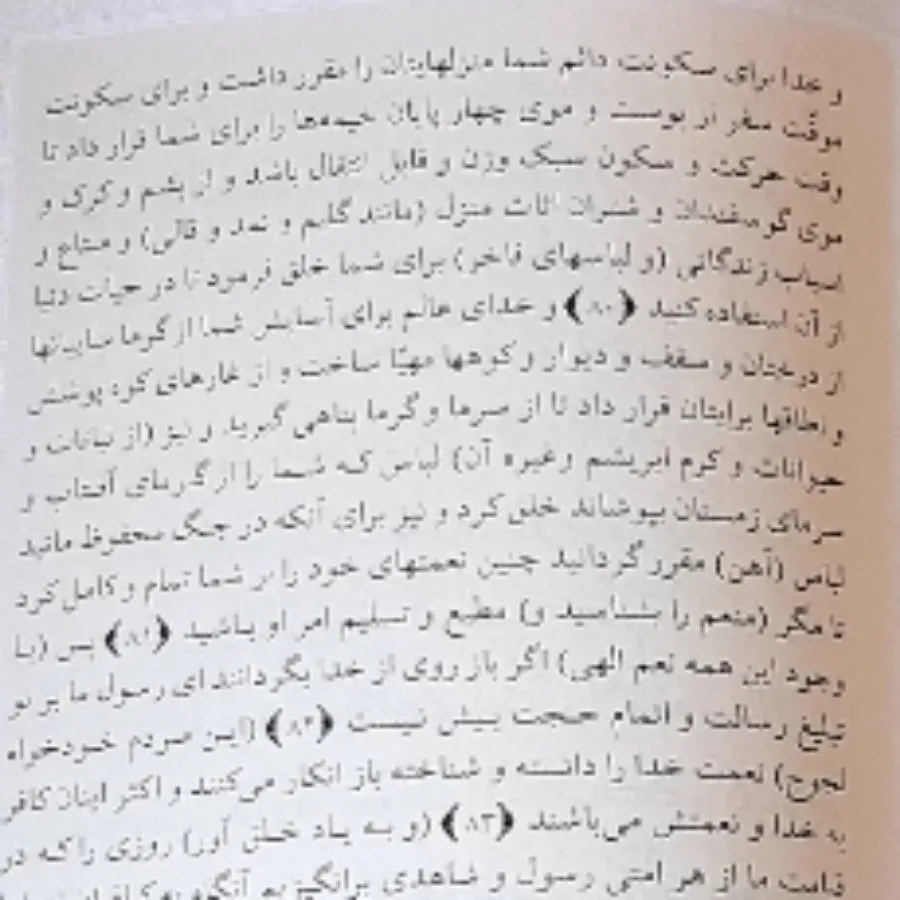 و خدا برای سکونت دائم شما منزلهایتان را مقرر داشت و برای سکونت
موقّت سفر از پوست و موی چهار پایان خیمه‌ها را برای شما قرار داد تا
وقت حرکت و سکون سبک وزن و قابل انتقال باشد و از پشم و کرک و
موی گوسفندان و شتران اثاث منزل (مانند گلیم و نمد و قالی) و متاع و
اسباب زندگانی (و لباسهای فاخر) برای شما خلق فرمود تا در حیات دنیا
از آن استفاده کنید ﴿۸۰﴾ و خدای عالم برای آسایش شما از گرما سایبانها
از درختان و سقف و دیوار و کوهها مهیّا ساخت و از غارهای کوه پوشش
و اطاقها برایتان قرار داد تا از سرما و گرما پناهی گیرید و نیز (از نباتات و
حیوانات و کرم ابریشم و غیره آن) لباس که شما را از گرمای آفتاب و
سرمای زمستان بپوشاند خلق کرد و نیز برای آنکه در جنگ محفوظ مانید
لباس (آهن) مقرر گردانید چنین نعمتهای خود را بر شما تمام و کامل کرد
تا مگر (منعم را بشناسید و) مطیع و تسلیم امر او باشید ﴿۸۱﴾ پس (با
وجود این همه نعم الهی) اگر باز روی از خدا بگردانند ای رسول ما بر تو
تبلیغ رسالت و اتمام حجت بیش نیست ﴿۸۲﴾ (این مردم خودخواه
لجوج) نعمت خدا را دانسته و شناخته باز انکار می‌کنند و اکثر اینان کافر
به خدا و نعمتش می‌باشند ﴿۸۳﴾ (و به یاد خلق آور) روزی را که در
قیامت ما از هر امتی رسول و شاهدی برانگیزیم آنگاه به